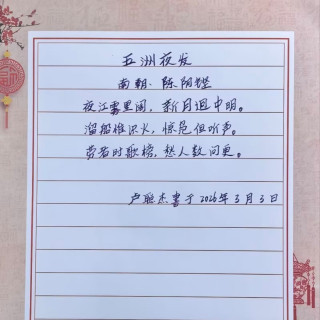 五洲夜发
南朝·陈 阴铿
夜江雾里阔，新月迥中明。
溜船惟识火，惊凫但听声。
劳者时歌榜，愁人数问更。
卢聪杰书于2026年3月3日